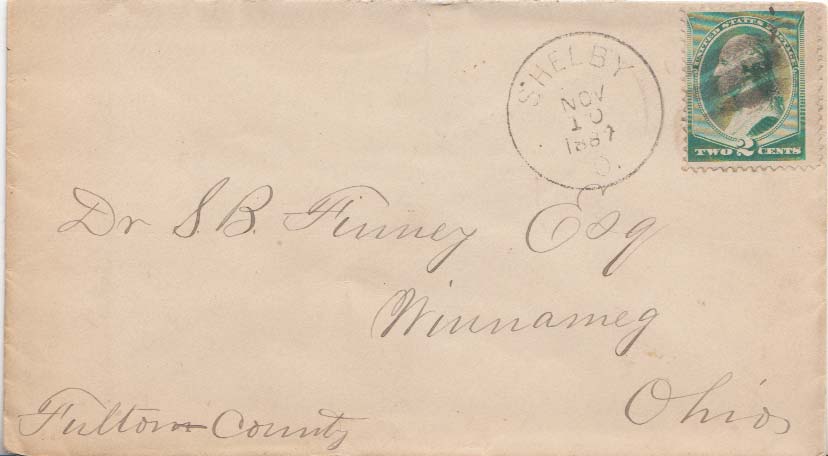 UNITED STATES POSTAGE
TWO 2 CENTS
SHELBY
NOV
10
1887
O.
Dr S. B. Finney Esq
Winnameg
Ohio
Fulton County